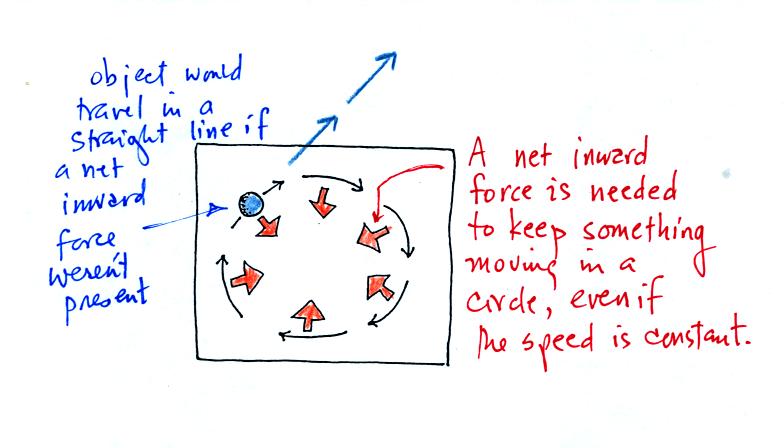 object would
travel in a
straight line if
a net
inward
force
weren't
present
A net inward
force is needed
to keep something
moving in a
circle, even if
the speed is constant.